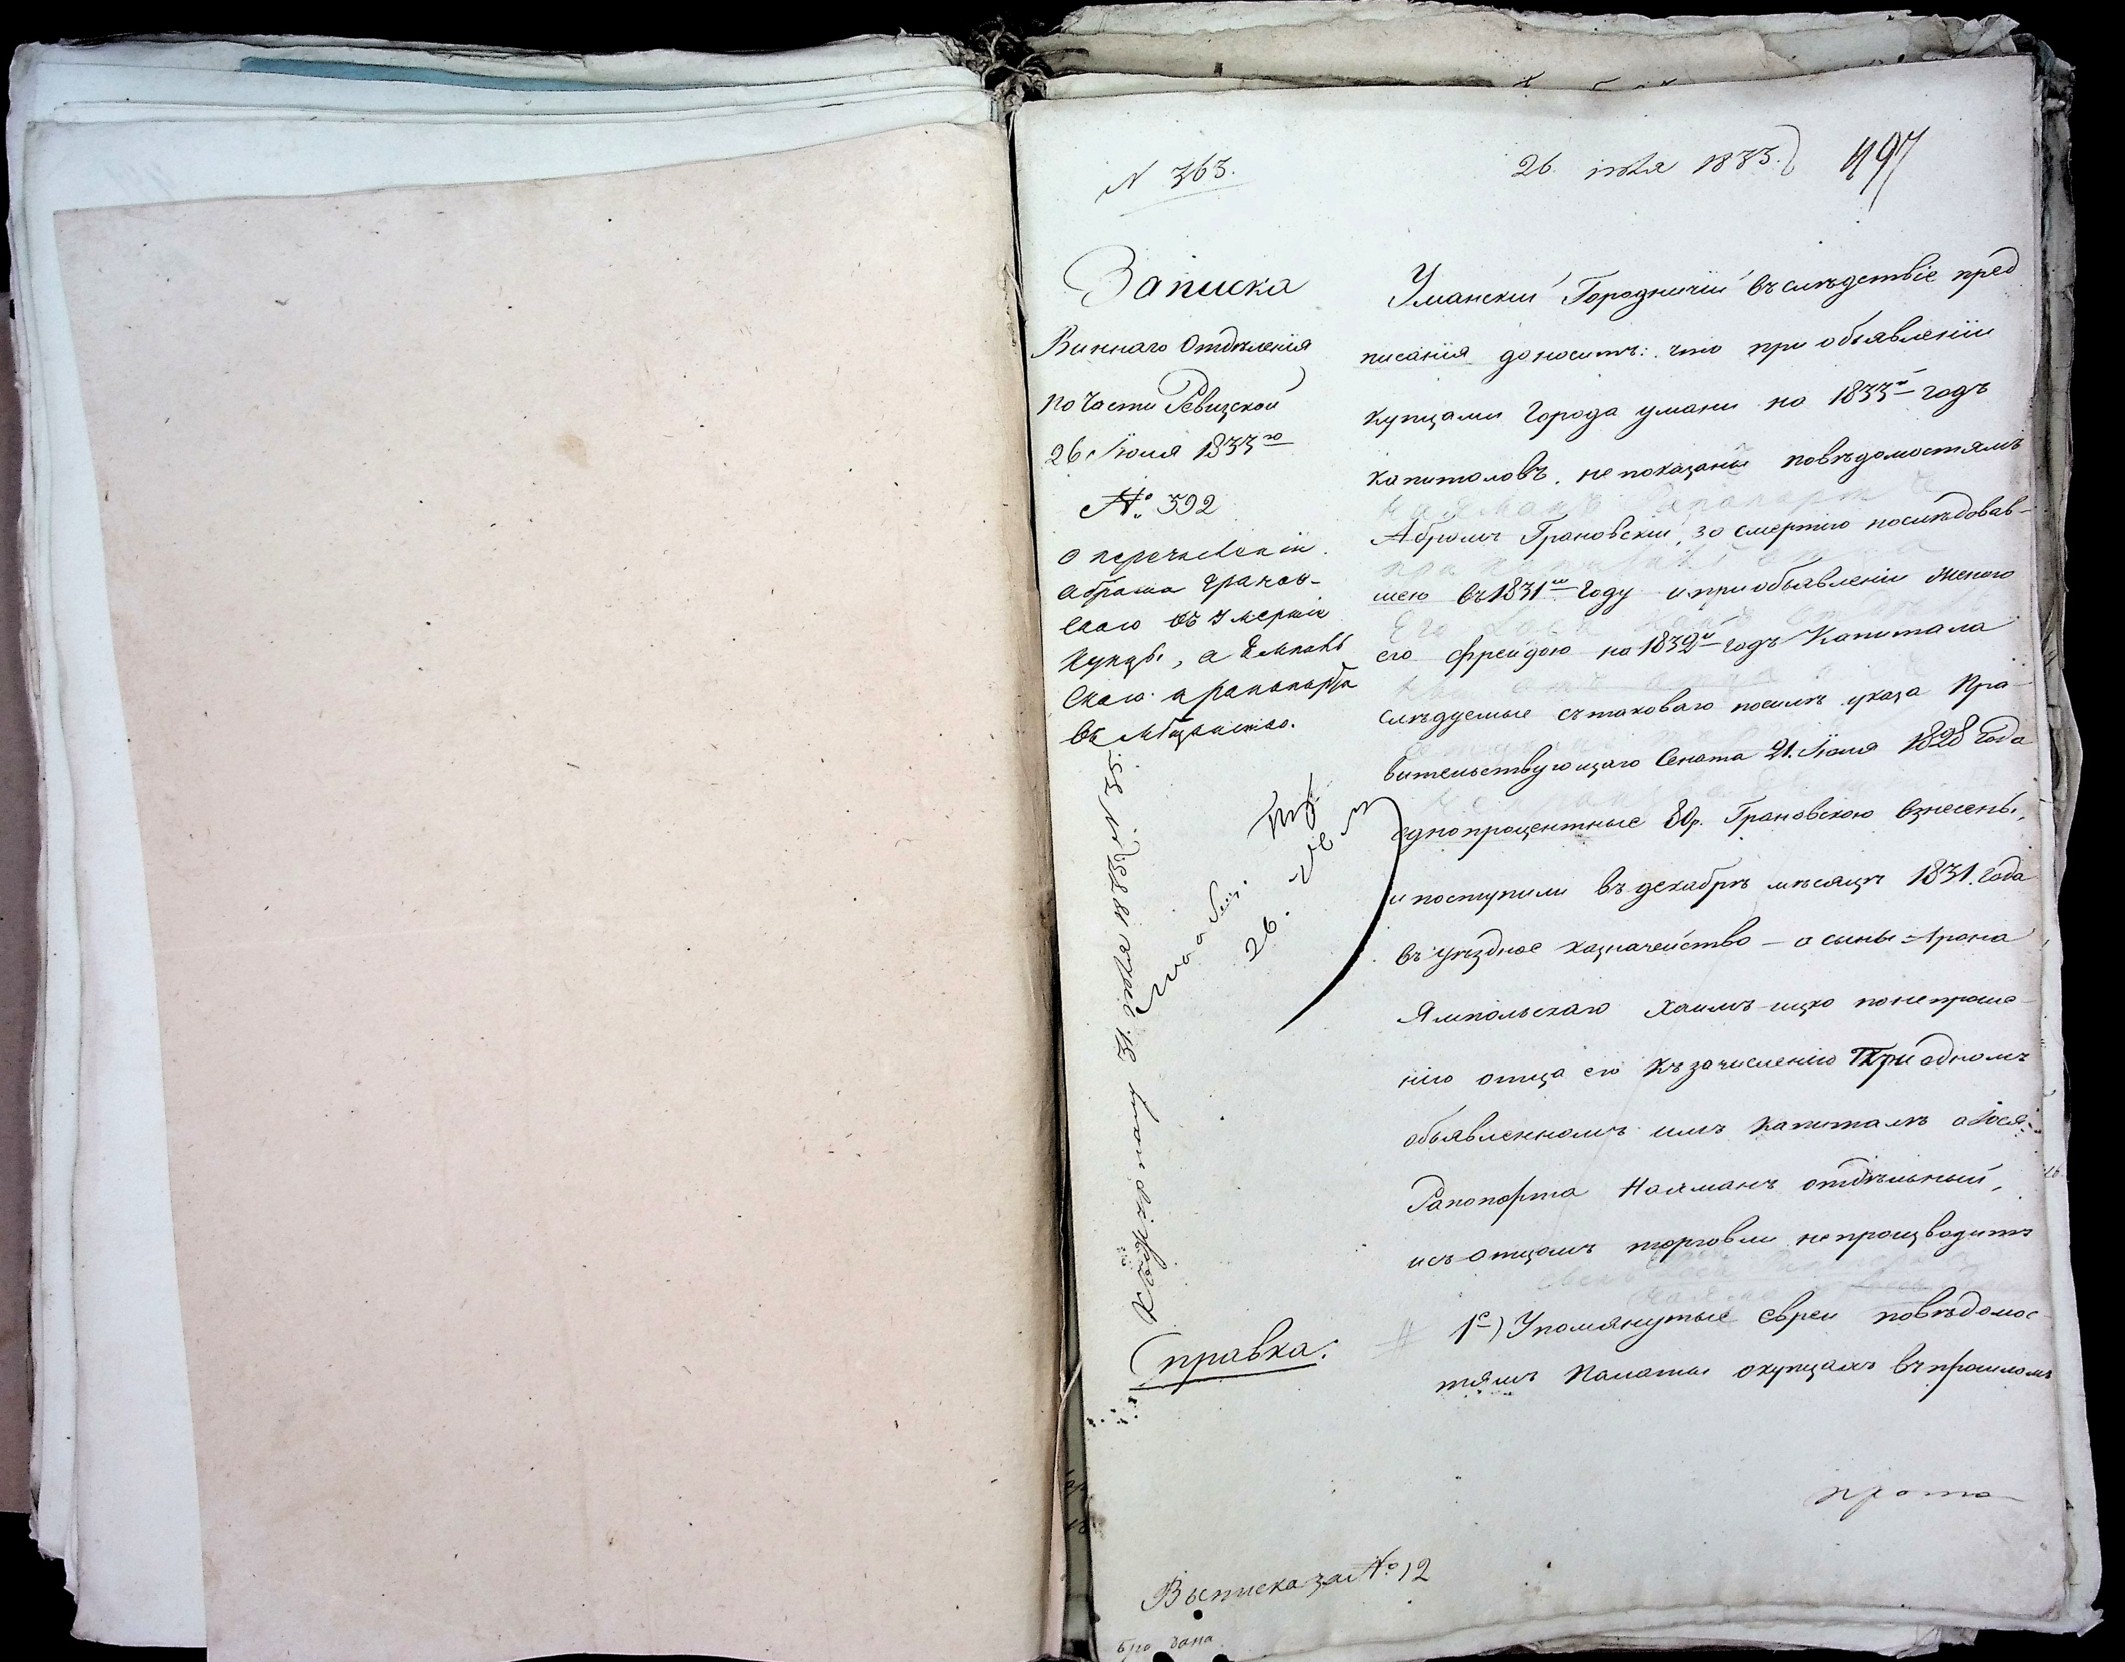 N 363.
26 июля 1833.
497
Записка
Виннаго Отдѣленія
по части Ревизской
26 Іюля 1833 го
№ 392
о перечисленіи
Абрама Гранов-
скаго въ умершіе
Купцы, а Ямполь
скаго и Рапопорта
въ мѣщанство.
26.
Справка.
Уманскій Городничій въ слѣдствіе пред
писанія доноситъ: что при объявленіи
купцами Города умани на 1833 й годъ
капиталовъ, не показаны по вѣдомостямъ
Абрамъ Грановскій, за смертію послѣдовав-
шею въ 1831 м Году и при объявленіи женою
его Фрейдою на 1832 й годъ Капитала
слѣдуемые съ таковаго посилѣ указа Пра-
вительствующаго Сената 21. Іюля 1828 года
однопроцентные 80р. Грановскою взнесены,
и поступили въ декабрѣ мѣсяцѣ 1831. года
въ уѣздное казначейство – а сыны Арона
Ямпольскаго Хаимъ-ицко по непроше-
нію отца его къ зачисленію При одномъ
объявленномъ имъ капиталѣ а Іося
Рапопорта Найманъ отдѣльный,
и съ отцомъ торговли не производитъ
1 е) Упомянутые Евреи по вѣдомос-
тямъ Палаты о купцахъ въ прошломъ
Выписка за № 12